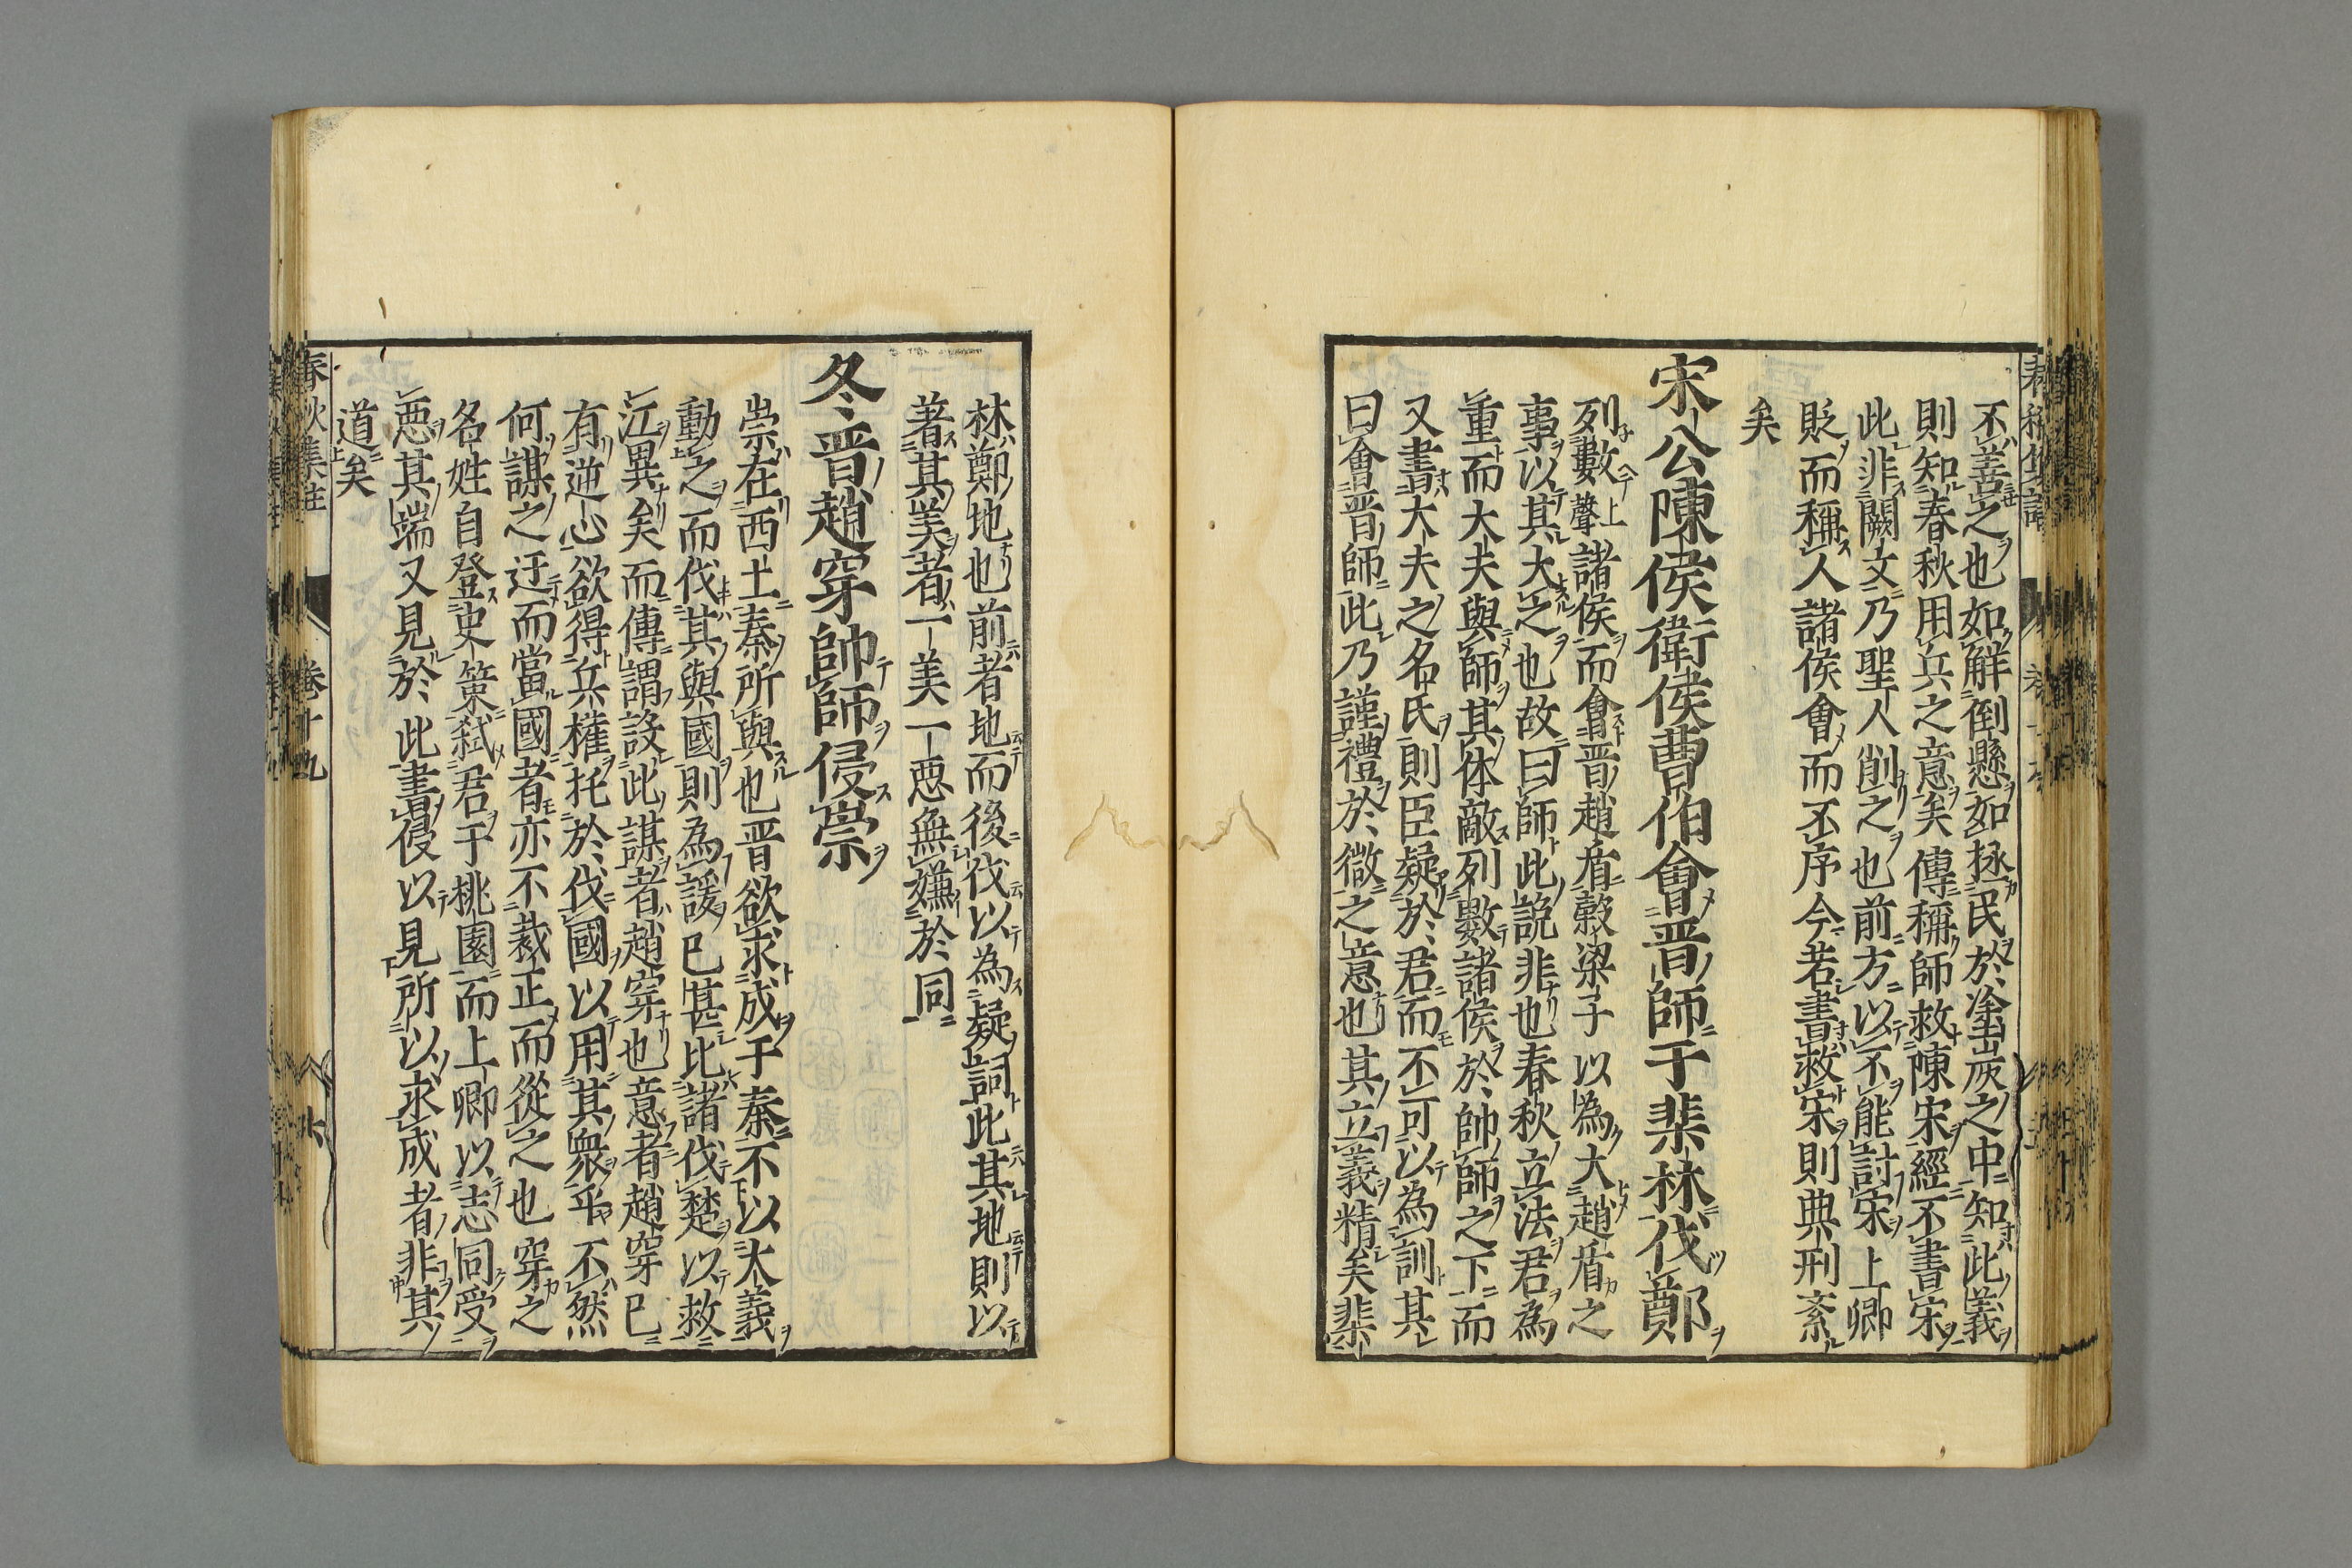 不善之也如解倒懸如拯民於塗炭之中知此義
則知春秋用兵之意矣傳稱師救陳宋經不書宋
此非闕文乃聖人削之也前方以不能討宋上卿
貶而稱人諸侯會而不序今若書救宋則典刑紊
矣
宋公陳侯衛侯曹伯會晉師于棐林伐鄭
列數上聲諸侯而會晉趙盾穀梁子以為大趙盾之
事以其大之也故曰師此說非也春秋立法君為
重而大夫與師其体敵列數諸侯於帥師之下而
又書大夫之名氏則臣疑於君而不可以為訓其
曰會晉師此乃謹禮於微之意也其立義精矣棐
林鄭地也前者地而後伐以為疑詞此其地則以
著其美者一美一惡無嫌於同
冬晉趙穿帥師侵崇
崇在西土秦所與也晉欲求成于秦不以大義
動之而伐其與國則為諼已甚比諸伐楚以救
江異矣而傳謂設此謀者趙穿也意者趙穿已
有逆心欲得兵權托於伐國以用其衆乎不然
何謀之迂而當國者亦不裁正而從之也穿之
名姓自登史策弒君于桃園而上卿以志同受
惡其端又見於此書侵以見所以求成者非其
道矣
春秋集註
卷十九